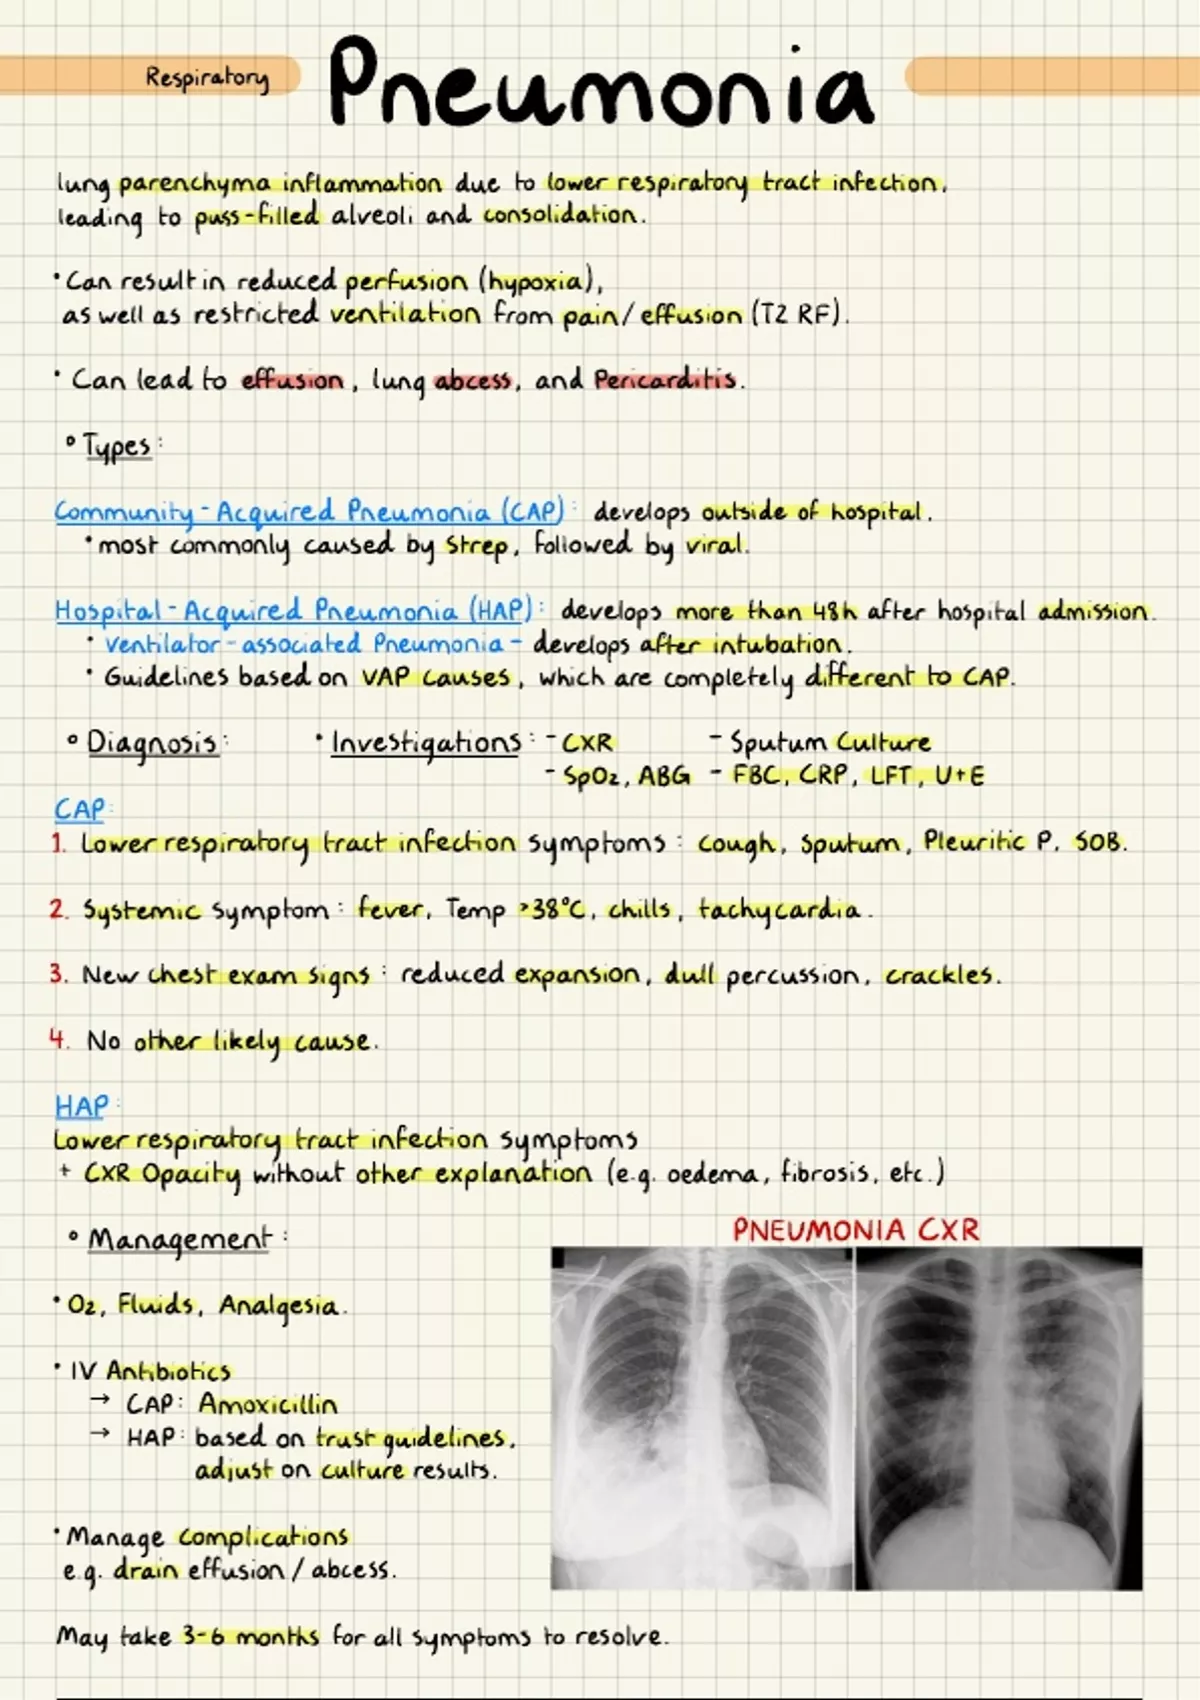 Respiratory
Pneumonia
lung parenchyma inflammation due to lower respiratory tract infection,
leading to puss-filled alveoli and consolidation.
• Can result in reduced perfusion (hypoxia),
as well as restricted ventilation from pain/effusion (T2 RF).
• Can lead to effusion, lung abcess, and Pericarditis.
° Types:
Community-Acquired Pneumonia (CAP): develops outside of hospital.
• most commonly caused by Strep, followed by viral.
Hospital-Acquired Pneumonia (HAP): develops more than 48h after hospital admission.
• Ventilator-associated Pneumonia - develops after intubation.
• Guidelines based on VAP causes, which are completely different to CAP.
° Diagnosis: • Investigations: - CXR - Sputum Culture
- SpO2, ABG - FBC, CRP, LFT, U+E
CAP:
1. Lower respiratory tract infection symptoms: cough, sputum, Pleuritic P. SOB.
2. Systemic symptom: fever, Temp >38°C, chills, tachycardia.
3. New chest exam signs: reduced expansion, dull percussion, crackles.
4. No other likely cause.
HAP:
Lower respiratory tract infection symptoms
+ CXR Opacity without other explanation (e.g. oedema, fibrosis, etc.)
° Management:
PNEUMONIA CXR
• O2, Fluids, Analgesia.
• IV Antibiotics
→ CAP: Amoxicillin
→ HAP: based on trust guidelines,
adjust on culture results.
• Manage complications
e.g. drain effusion / abcess.
May take 3-6 months for all symptoms to resolve.